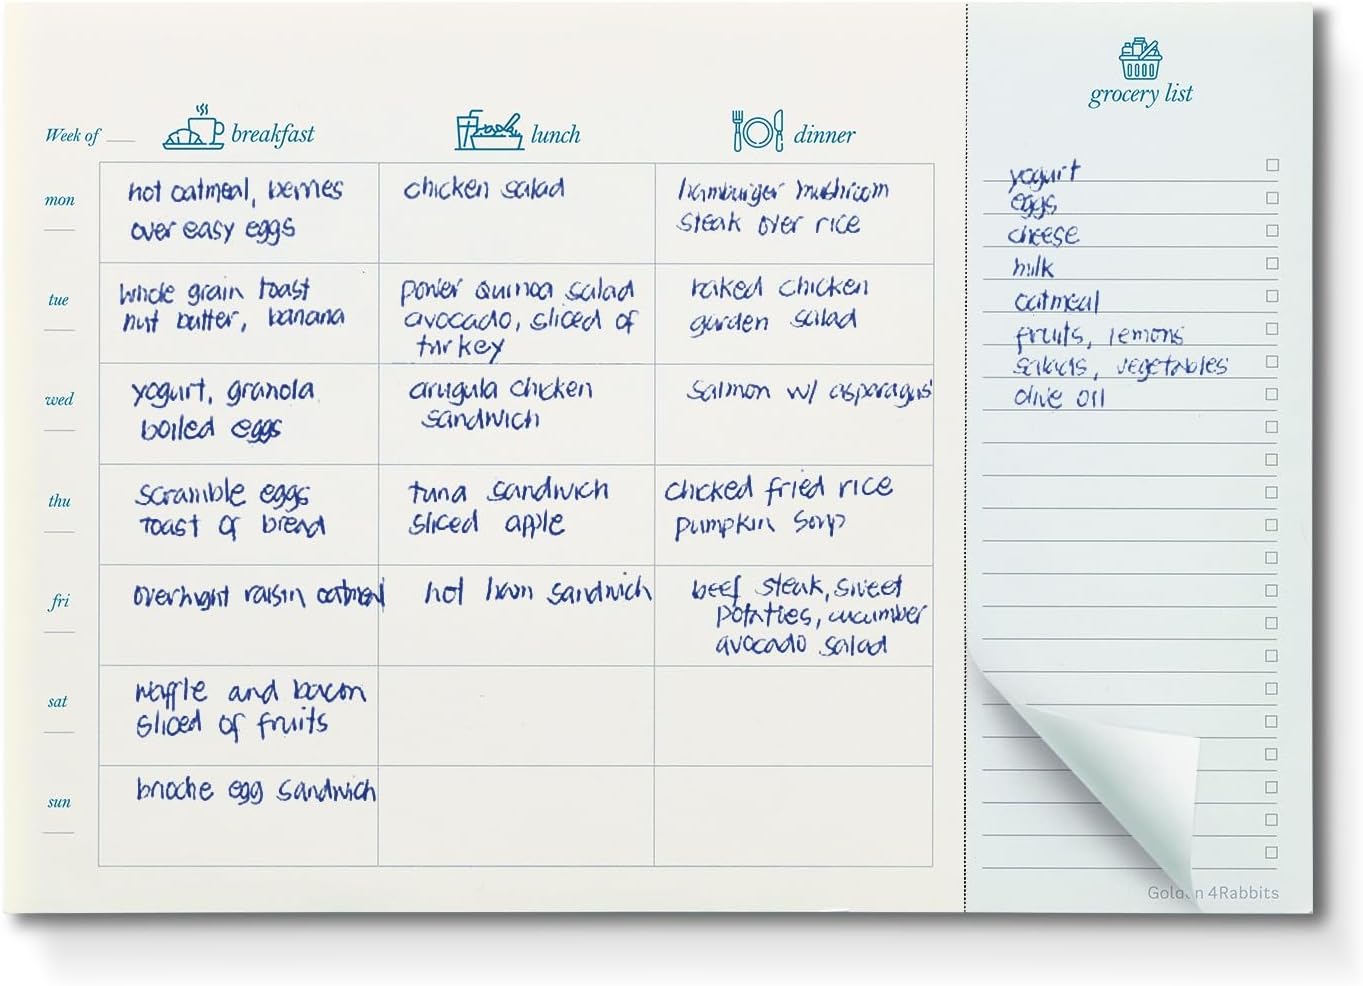 grocery list
Week of
breakfast
lunch
dinner
mon
hot oatmeal, berries
over easy eggs
chicken salad
hamburger mushroom
steak over rice
tue
whole grain toast
nut butter, banana
power quinoa salad
avocado, sliced of
turkey
baked chicken
garden salad
wed
yogurt, granola
boiled eggs
arugula chicken
sandwich
salmon w/ asparagus
thu
scramble eggs
toast of bread
tuna sandwich
sliced apple
chicked fried rice
pumpkin soup
fri
overnight raisin oatmeal
hot ham sandwich
beef steak, sweet
potaties, cucumber
avocado salad
sat
waffle and bacon
sliced of fruits
sun
brioche egg sandwich
yogurt
eggs
cheese
milk
oatmeal
fruits, lemons
salads, vegetables
olive oil
Golden 4Rabbits